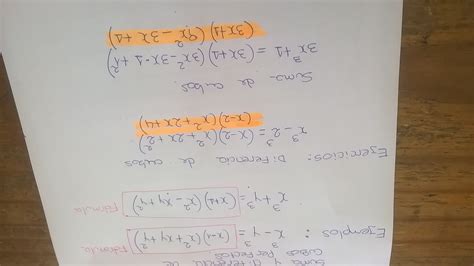 Suma y diferencia de
Cubos Perfectos
Ejemplos: x³ - y³ = (x-y)(x²+xy+y²) Fórmula
x³ + y³ = (x+y)(x²-xy+y²) Fórmula
Ejercicios: Diferencia de cubos
x³ - 2³ = (x-2)(x²+2x+2²)
(x-2)(x²+2x+4)
Suma de cubos.
3x³+1 = (3x+1)(3x²-3x·1+1²)
(3x+1)(9x²-3x+1)